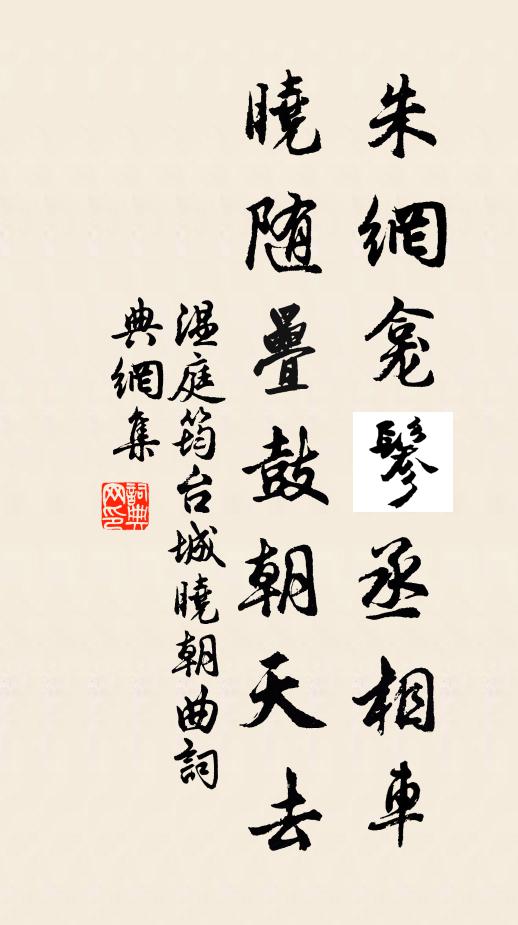 朱網龕鬖丞相車
曉随疊鼓朝天去
温庭筠台城曉朝曲詞
典網集
詞典
网印